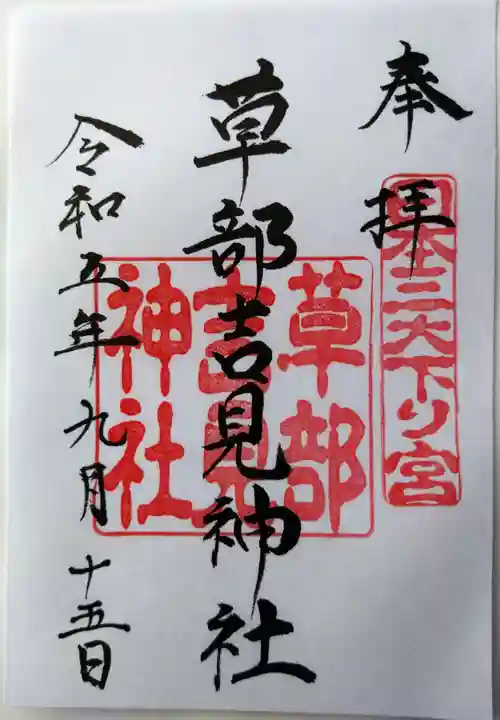 奉拝
日本三大下り宮
草部吉見神社
草部
吉見
神社
令和五年九月十五日